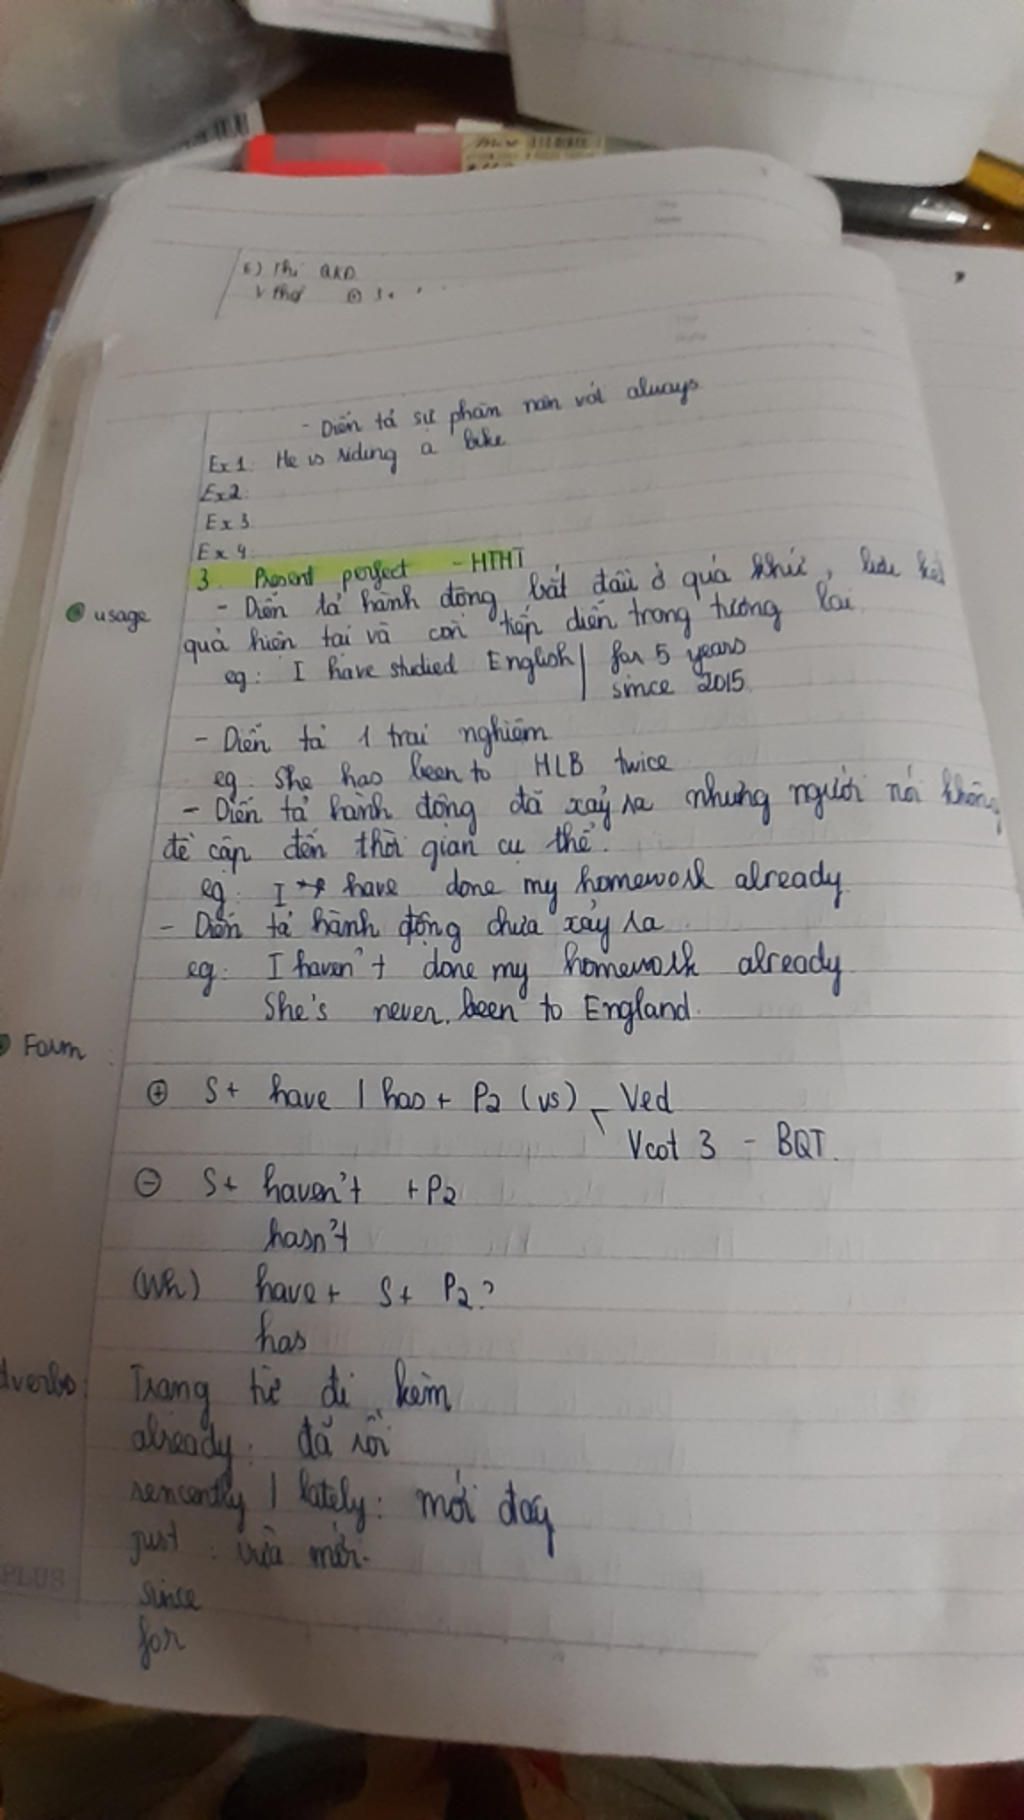 - Diễn tả sự phàn nàn với always
Ex1: He is riding a bike
Ex2:
Ex3
Ex4:
3. Present perfect - HTHT
usage
- Diễn tả hành động bắt đầu ở quá khứ, lưu kết
quả hiện tại và còn tiếp diễn trong tương lai
eg: I have studied English | for 5 years
since 2015
- Diễn tả 1 trải nghiệm
eg: She has been to HLB twice
- Diễn tả hành động đã xảy ra nhưng người nói không
đề cập đến thời gian cụ thể.
eg: I have done my homework already
- Diễn tả hành động chưa xảy ra
eg: I haven't done my homework already
She's never been to England.
Form:
(+) S+ have / has + P2 (vs) Ved
Vcot 3 - BQT.
(-) S+ haven't + P2
hasn't
(Wh) have + S+ P2?
has
dverbs: Trạng từ đi kèm
already: đã rồi
rencently / lately: mới đây
just: vừa mới.
PLUS
since
for